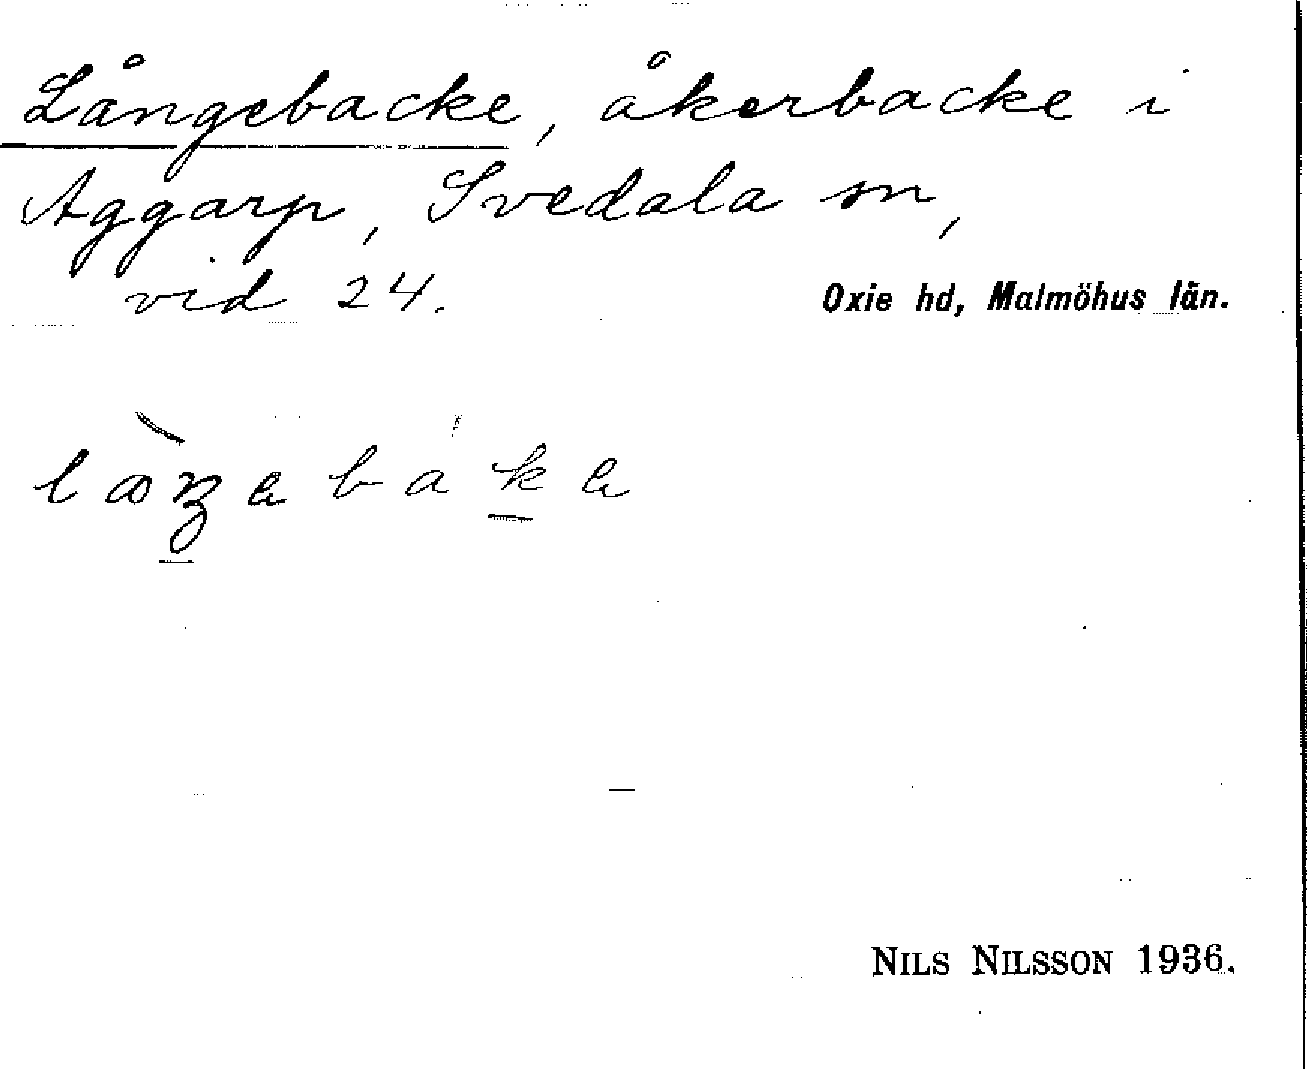 Långebacke, åkerbacke i
Aggarp, Svedala sn,
vid 24.
Oxie hd, Malmöhus län.
NILS NILSSON 1936.